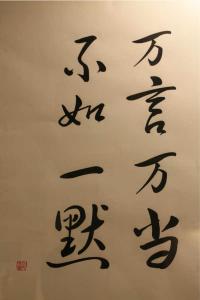 万言万当
不如一默